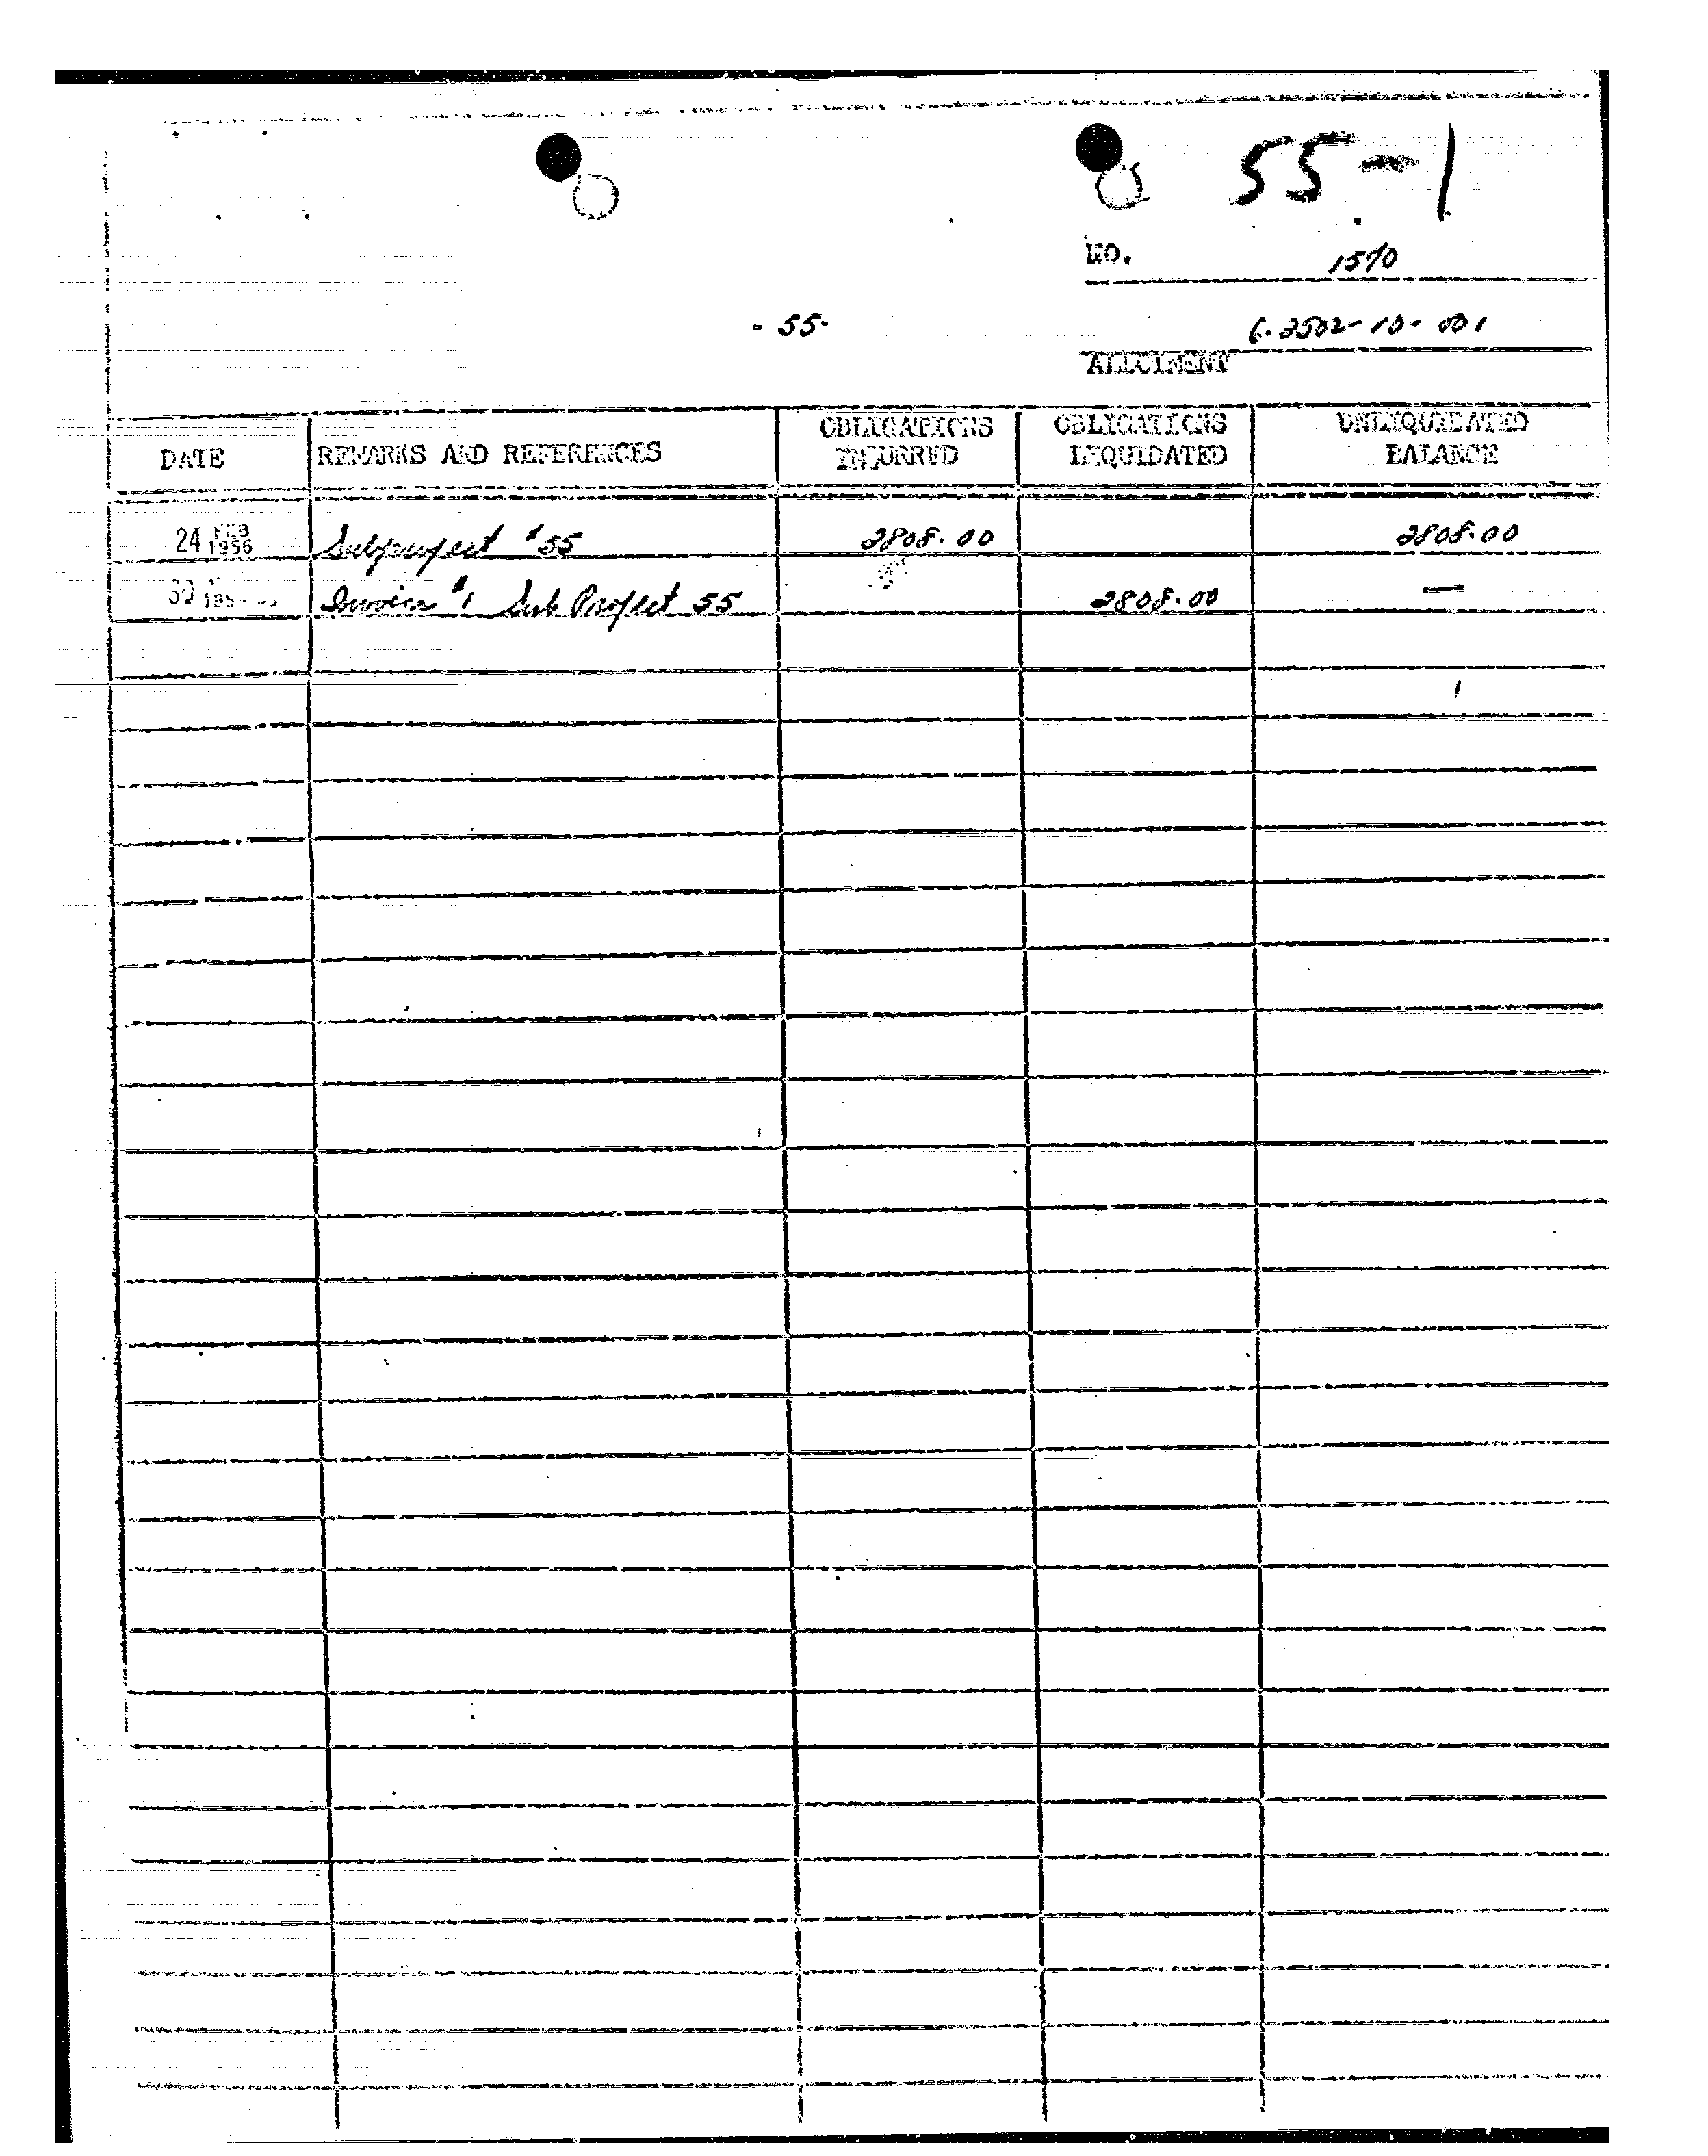 55-1
NO. 1570
- 55-
6.2502-10-001
ALLOTMENT
DATE REMARKS AND REFERENCES OBLIGATIONS INCURRED OBLIGATIONS LIQUIDATED UNLIQUIDATED BALANCE
24 FEB 1956 Subproject #55 2808.00 2808.00
Invoice #1 Sub Project 55 2808.00 —